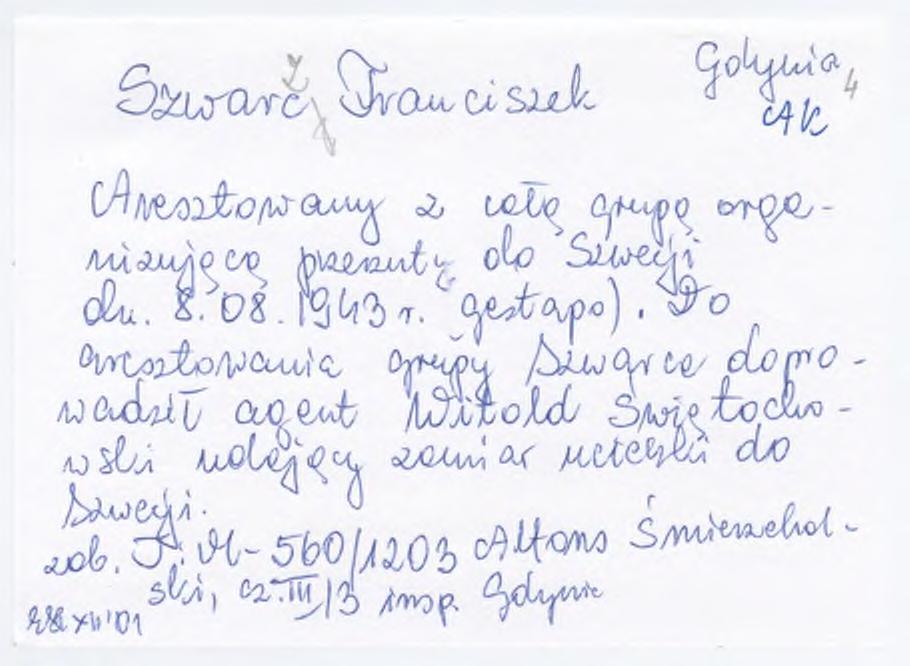 Gdynia 4
Szwarc z Franciszek
AK
Aresztowany z całą grupą orga-
nizującą przerzuty do Szwecji
dn. 8.08.1943 r. gestapo). Do
aresztowania grupy Szwarca dopro-
wadził agent Witold Świętocho-
wski udający zamiar ucieczki do
Szwecji.
zob. T. M-560/1203 Alfons Śmierzchal-
ski, cz. III/3 insp. Gdynia
XII'01